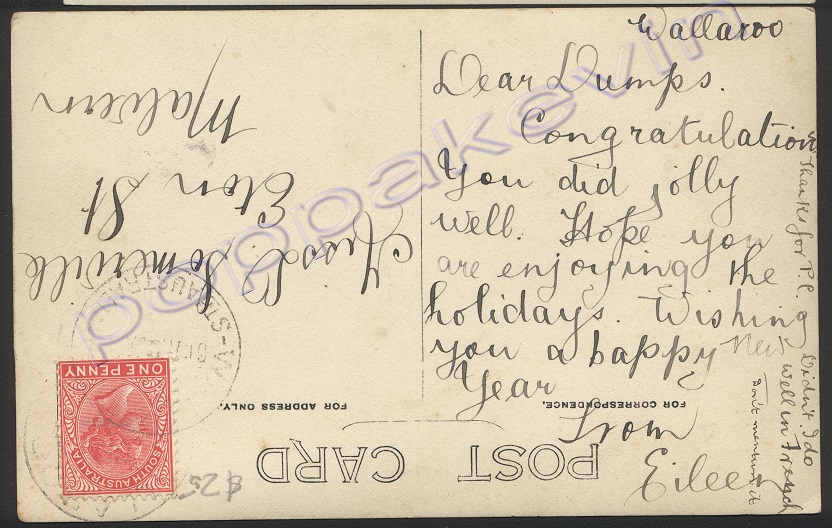 Wallaroo
Dear Dumps.
Congratulations
You did jolly
well. Hope you
are enjoying the
holidays. Wishing
you a happy New
Year
From
Eileen
Thanks for P.C. Didn't I do
well in French
Don't mention it
Miss L. Somerville
Eton St
Malvern
POST CARD
FOR CORRESPONDENCE.
FOR ADDRESS ONLY.
SOUTH AUSTRALIA
ONE PENNY
$25
poppakevin